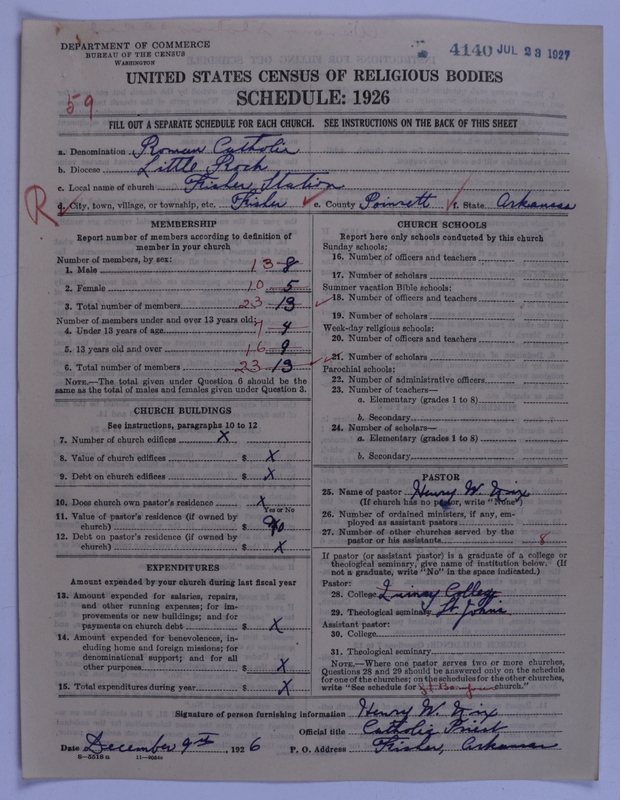 DEPARTMENT OF COMMERCE
BUREAU OF THE CENSUS
WASHINGTON
4140 JUL 23 1927
UNITED STATES CENSUS OF RELIGIOUS BODIES
SCHEDULE: 1926
59
FILL OUT A SEPARATE SCHEDULE FOR EACH CHURCH. SEE INSTRUCTIONS ON THE BACK OF THIS SHEET
a. Denomination Roman Catholic
b. Diocese Little Rock
c. Local name of church Fisher Station
R
d. City, town, village, or township, etc. Fisher e. County Poinsett f. State Arkansas
MEMBERSHIP
Report number of members according to definition of
member in your church
Number of members, by sex:
1. Male 13 8
2. Female 10 5
3. Total number of members 23 13
Number of members under and over 13 years old:
4. Under 13 years of age 7 4
5. 13 years old and over 16 9
6. Total number of members 23 13
NOTE.—The total given under Question 6 should be the
same as the total of males and females given under Question 3.
CHURCH BUILDINGS
See instructions, paragraphs 10 to 12
7. Number of church edifices X
8. Value of church edifices $ X
9. Debt on church edifices $ X
10. Does church own pastor's residence X
Yes or No
11. Value of pastor's residence (if owned by
church) $ No
12. Debt on pastor's residence (if owned by
church) $ X
EXPENDITURES
Amount expended by your church during last fiscal year
13. Amount expended for salaries, repairs,
and other running expenses; for im-
provements or new buildings; and for
payments on church debt $ X
14. Amount expended for benevolences, in-
cluding home and foreign missions; for
denominational support; and for all
other purposes $ X
15. Total expenditures during year $ X
CHURCH SCHOOLS
Report here only schools conducted by this church
Sunday schools:
16. Number of officers and teachers
17. Number of scholars
Summer vacation Bible schools:
18. Number of officers and teachers
19. Number of scholars
Week-day religious schools:
20. Number of officers and teachers
21. Number of scholars
Parochial schools:
22. Number of administrative officers
23. Number of teachers—
a. Elementary (grades 1 to 8)
b. Secondary
24. Number of scholars—
a. Elementary (grades 1 to 8)
b. Secondary
PASTOR
25. Name of pastor Henry W.
(If church has no pastor, write "None")
26. Number of ordained ministers, if any, em-
ployed as assistant pastors
27. Number of other churches served by the
pastor or his assistants 8
If pastor (or assistant pastor) is a graduate of a college or
theological seminary, give name of institution below. (If
not a graduate, write "No" in the space indicated.)
Pastor:
28. College Quincy College
29. Theological seminary St. Johns
Assistant pastor:
30. College
31. Theological seminary
NOTE.—Where one pastor serves two or more churches,
Questions 28 and 29 should be answered only on the schedule
for one of the churches; on the schedules for the other churches,
write "See schedule for church."
Signature of person furnishing information Henry W.
Official title Catholic Priest
Date December 9th, 1926 P. O. Address Fisher, Arkansas
8-5518a 11-9034